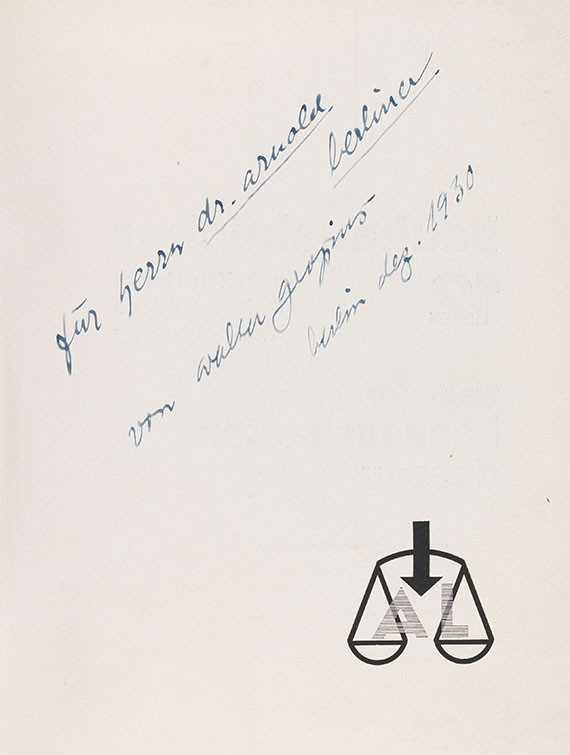 für herrn dr. arnold
berliner.
von walter gropius
berlin dez. 1930
AL